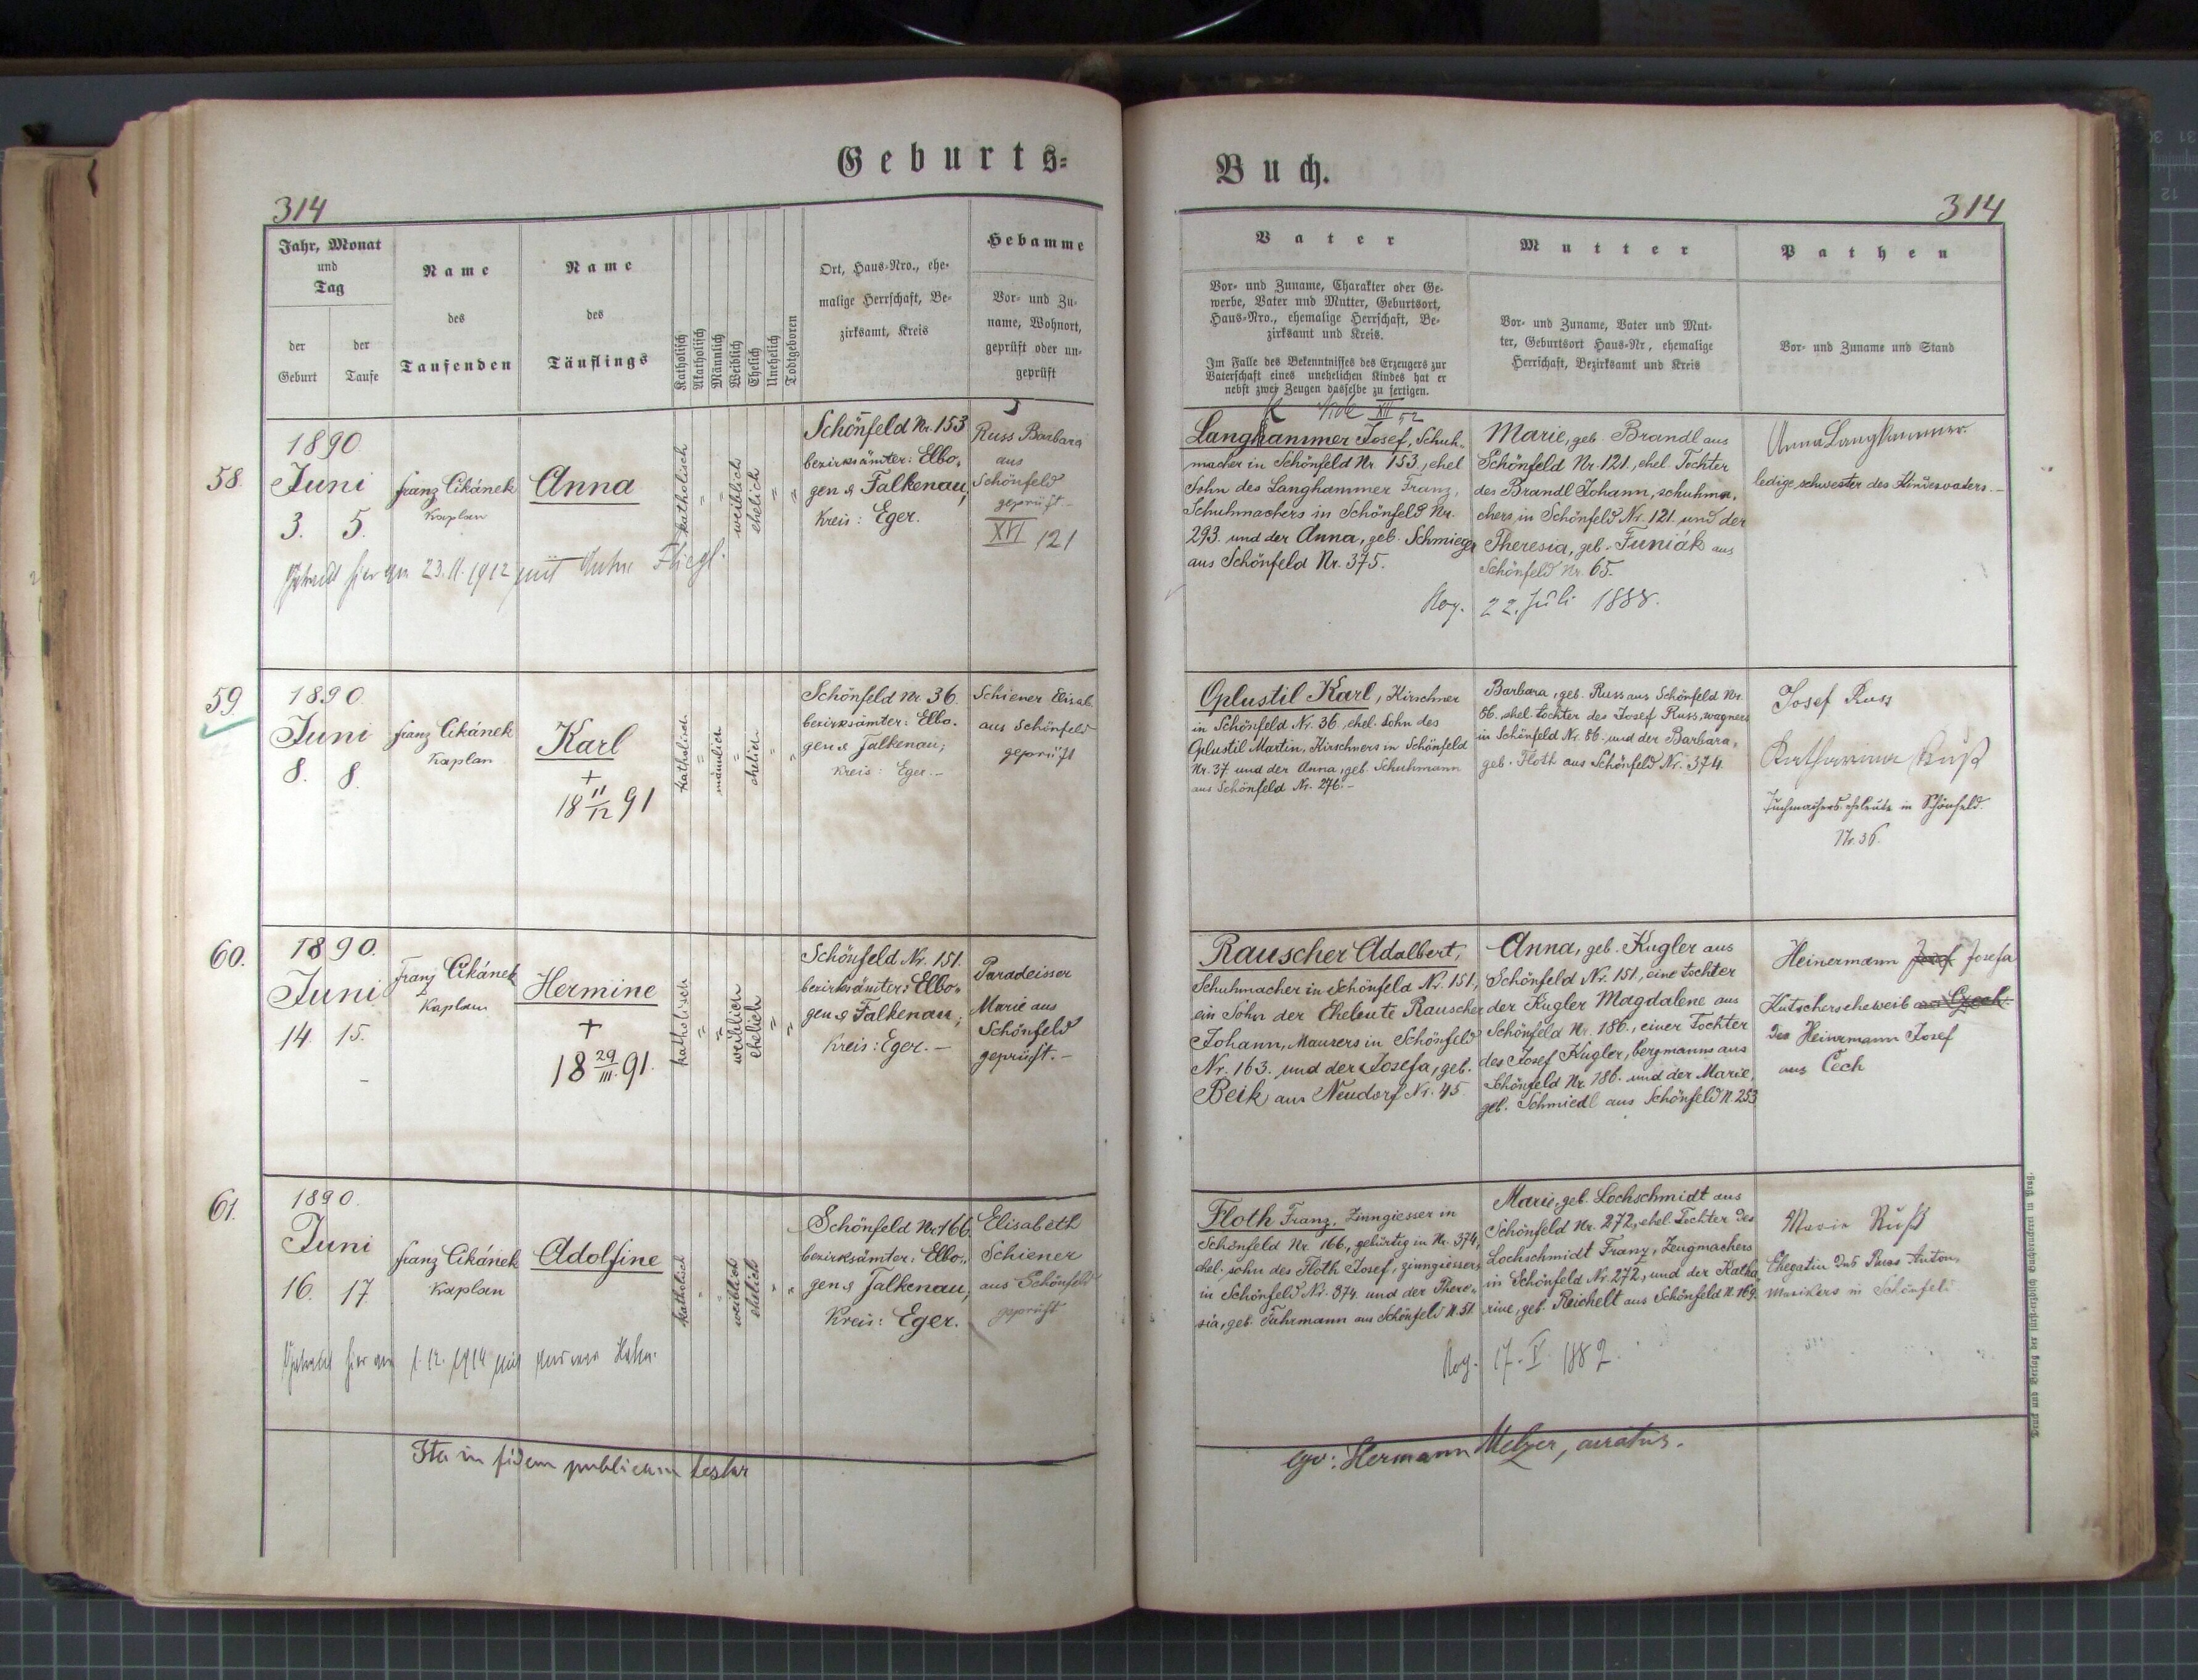 Geburts-
Buch.
314
314
Jahr, Monat
und
Tag
der
Geburt
der
Taufe
Name
des
Taufenden
Name
des
Täuflings
Katholisch
Akatholisch
Männlich
Weiblich
Ehelich
Unehelich
Todtgeboren
Ort, Haus-Nro., ehe-
malige Herrschaft, Be-
zirksamt, Kreis
Hebamme
Vor- und Zu-
name, Wohnort,
geprüft oder un-
geprüft
Vater
Vor- und Zuname, Charakter oder Ge-
werbe, Vater und Mutter, Geburtsort,
Haus-Nro., ehemalige Herrschaft, Be-
zirksamt und Kreis.
Im Falle des Bekenntnisses des Erzeugers zur
Vaterschaft eines unehelichen Kindes hat er
nebst zwei Zeugen dasselbe zu fertigen.
Mutter
Vor- und Zuname, Vater und Mut-
ter, Geburtsort Haus-Nr, ehemalige
Herrschaft, Bezirksamt und Kreis
Pathen
Vor- und Zuname und Stand
58.
1890
Juni
3. 5.
Franz Cikánek
Kaplan
Anna
katholisch
weiblich
ehelich
Schönfeld Nr. 153
bezirksämter: Elbo-
gen & Falkenau,
Kreis: Eger.
Russ Barbara
aus
Schönfeld
geprüft
XVI 121
hier am 23.11.1912 mit Fliegl.
Vide XII 52
Langhammer Josef, Schuh-
macher in Schönfeld Nr. 153., ehel
Sohn des Langhammer Franz,
Schuhmachers in Schönfeld Nr.
293. und der Anna, geb. Schmieger
aus Schönfeld Nr. 375.
Marie, geb. Brandl aus
Schönfeld Nr. 121., ehel. Tochter
des Brandl Johann, schuhma-
chers in Schönfeld Nr. 121. und der
Theresia, geb. Funiák aus
Schönfeld Nr. 65.
Kop. 22. Juli 1888.
Anna Langhammer
ledige schwester des Kindesvaters.-
59.
1890.
Juni
8. 8.
Franz Cikánek
Kaplan
Karl
+
18 11/12 91
katholisch
männlich
ehelich
Schönfeld Nr. 36.
bezirksämter: Elbo-
gen & Falkenau;
Kreis: Eger.-
Schiener Elisab.
aus Schönfeld
geprüft
Oplustil Karl, Kirschner
in Schönfeld Nr. 36. ehel. Sohn des
Oplustil Martin, Kirschners in Schönfeld
Nr. 37 und der Anna, geb. Schuhmann
aus Schönfeld Nr. 276.-
Barbara, geb. Russ aus Schönfeld Nr.
86. ehel. tochter des Josef Russ, wagners
in Schönfeld Nr. 86. und der Barbara,
geb. Floth aus Schönfeld Nr. 374.
Josef Russ
Katharina Ruß
in Schönfeld.
Nr. 36.
60.
1890.
Juni
14. 15.
Franz Cikánek
Kaplan
Hermine
+
18 29/III. 91.
katholisch
weiblich
ehelich
Schönfeld Nr. 151.
bezirksämter: Elbo-
gen & Falkenau;
Kreis: Eger.-
Paradeisser
Marie aus
Schönfeld
geprüft.-
Rauscher Adalbert,
Schuhmacher in Schönfeld Nr. 151.,
ein Sohn der Eheleute Rauscher
Johann, Maurers in Schönfeld
Nr. 163. und der Josefa, geb.
Beik aus Neudorf Nr. 45.
Anna, geb. Kugler aus
Schönfeld Nr. 151., eine tochter
der Kugler Magdalene aus
Schönfeld Nr. 186., einer Tochter
des Josef Kugler, bergmanns aus
Schönfeld Nr. 186. und der Marie,
geb. Schmiedl aus Schönfeld N. 253
Heinermann Josef Josefa
Kutscherseheweib aus Czech
des Heinermann Josef
aus Čech
61.
1890.
Juni
16. 17.
Franz Cikánek
Kaplan
Adolfine
katholisch
weiblich
ehelich
Schönfeld Nr. 166.
bezirksämter: Elbo-
gen & Falkenau,
Kreis: Eger.
Elisabeth
Schiener
aus Schönfeld
geprüft
hier am 1.12.1914 mit Hahn.
Floth Franz, Zinngiesser in
Schönfeld Nr. 166., gebürtig in Nr. 374,
ehel. sohn des Floth Josef, zinngiessers
in Schönfeld Nr. 374. und der There-
sia, geb. Fuhrmann aus Schönfeld N. 51.
Marie, geb. Lochschmidt aus
Schönfeld Nr. 272., ehel. Tochter des
Lochschmidt Franz, Zeugmachers
in Schönfeld Nr. 272., und der Katha-
rine, geb. Reichelt aus Schönfeld N. 169.
Kop. 17. V. 1882
Marie Ruß
Ehegatin des Russ Anton,
Musikers in Schönfeld
Ita in fidem publicam testor
ego: Hermann Melzer, curatus.
Druck und Verlag der fürst-erzbisch Buchdruckerei in Prag.